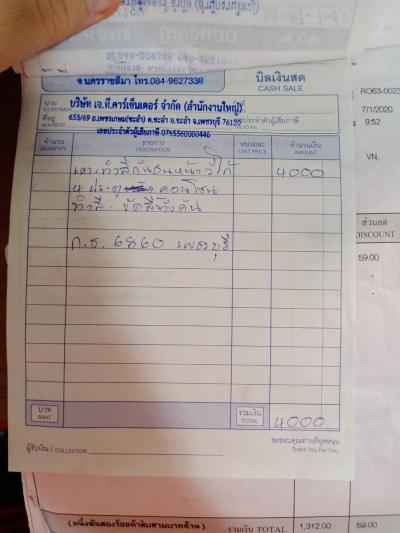 จ.นครราชสีมา โทร.084-9627339
บิลเงินสด
CASH SALE
นาม
CUSTOMER
บริษัท เจ.ที.คาร์เซ็นเตอร์ จำกัด (สำนักงานใหญ่)
ที่อยู่
ADDRESS
653/69 ถ.เพชรเกษม(ชะอำ) ต.ชะอำ อ.ชะอำ จ.เพชรบุรี 76120
เลขประจำตัวผู้เสียภาษี 0765560000446
จำนวน
QUANTITY
รายการ
DESCRIPTION
หน่วยละ
UNIT PRICE
จำนวนเงิน
AMOUNT
ทำสีกันชนหน้า วีโก้ 4000
4 ประตู คอนโซน
ทำสี ขัดสีทั้งคัน
ก.ธ. 6860 เพชรบุรี
บาท
BAHT
รวมเงิน
TOTAL
4000
ผู้รับเงิน / COLLECTOR
ขอขอบคุณท่านที่อุดหนุน
Thank You For You.
RO63-0023
7/1/2020
9:52
VN.
ส่วนลด
DISCOUNT
59.00
-
-
(หนึ่งพันสองร้อยห้าสิบสามบาทถ้วน)
รวมเงิน TOTAL 1,312.00 59.00